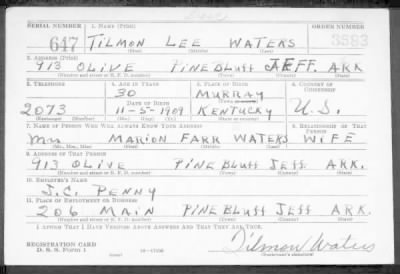 SERIAL NUMBER 1. NAME (Print) ORDER NUMBER
647 TILMON LEE WATERS 3583
(First) (Middle) (Last)
2. ADDRESS (Print)
913 OLIVE PINE BLUFF JEFF. ARK
(Number and street or R. F. D. number) (Town) (County) (State)
3. TELEPHONE 4. AGE IN YEARS 5. PLACE OF BIRTH 6. COUNTRY OF CITIZENSHIP
30 MURRAY
DATE OF BIRTH (Town or county)
2073 11-5-1909 KENTUCKY U.S.
(Exchange) (Number) (Mo.) (Day) (Yr.) (State or country)
7. NAME OF PERSON WHO WILL ALWAYS KNOW YOUR ADDRESS 8. RELATIONSHIP OF THAT PERSON
Mrs MARION FARR WATERS WIFE
(Mr., Mrs., Miss) (First) (Middle) (Last)
9. ADDRESS OF THAT PERSON
913 OLIVE PINE BLUFF JEFF ARK.
(Number and street or R. F. D. number) (Town) (County) (State)
10. EMPLOYER'S NAME
J.C. PENNY
11. PLACE OF EMPLOYMENT OR BUSINESS
206 MAIN PINE BLUFF JEFF ARK.
(Number and street or R. F. D. number) (Town) (County) (State)
I AFFIRM THAT I HAVE VERIFIED ABOVE ANSWERS AND THAT THEY ARE TRUE.
REGISTRATION CARD
D. S. S. Form 1 (over) 16-17105 Tilmon Waters
(Registrant's signature)